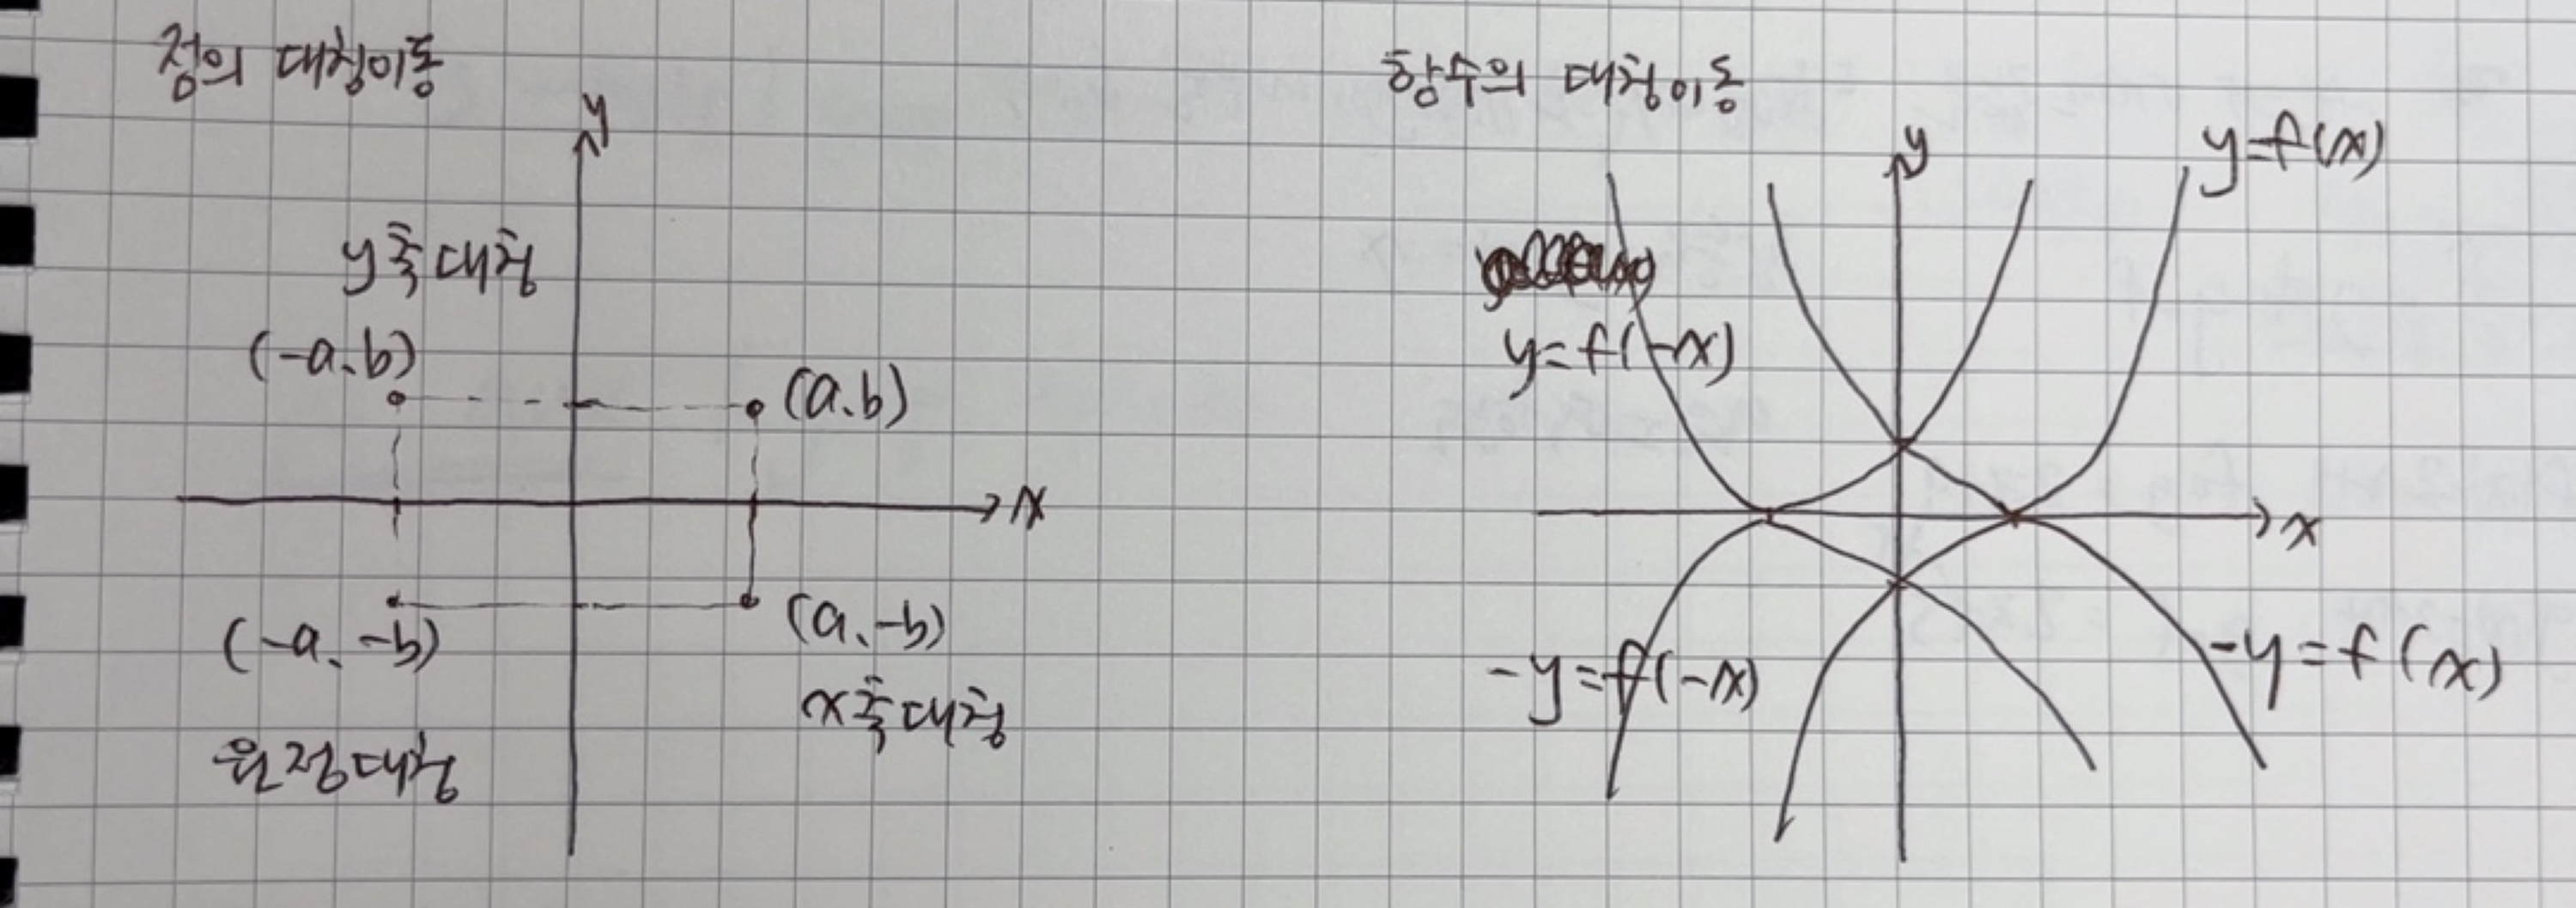 점의 대칭이동
y
y축대칭
(-a.b)
(a.b)
x
(-a.-b)
(a.-b)
x축대칭
원점대칭
함수의 대칭이동
y
y=f(x)
y=f(-x)
x
-y=f(-x)
-y=f(x)